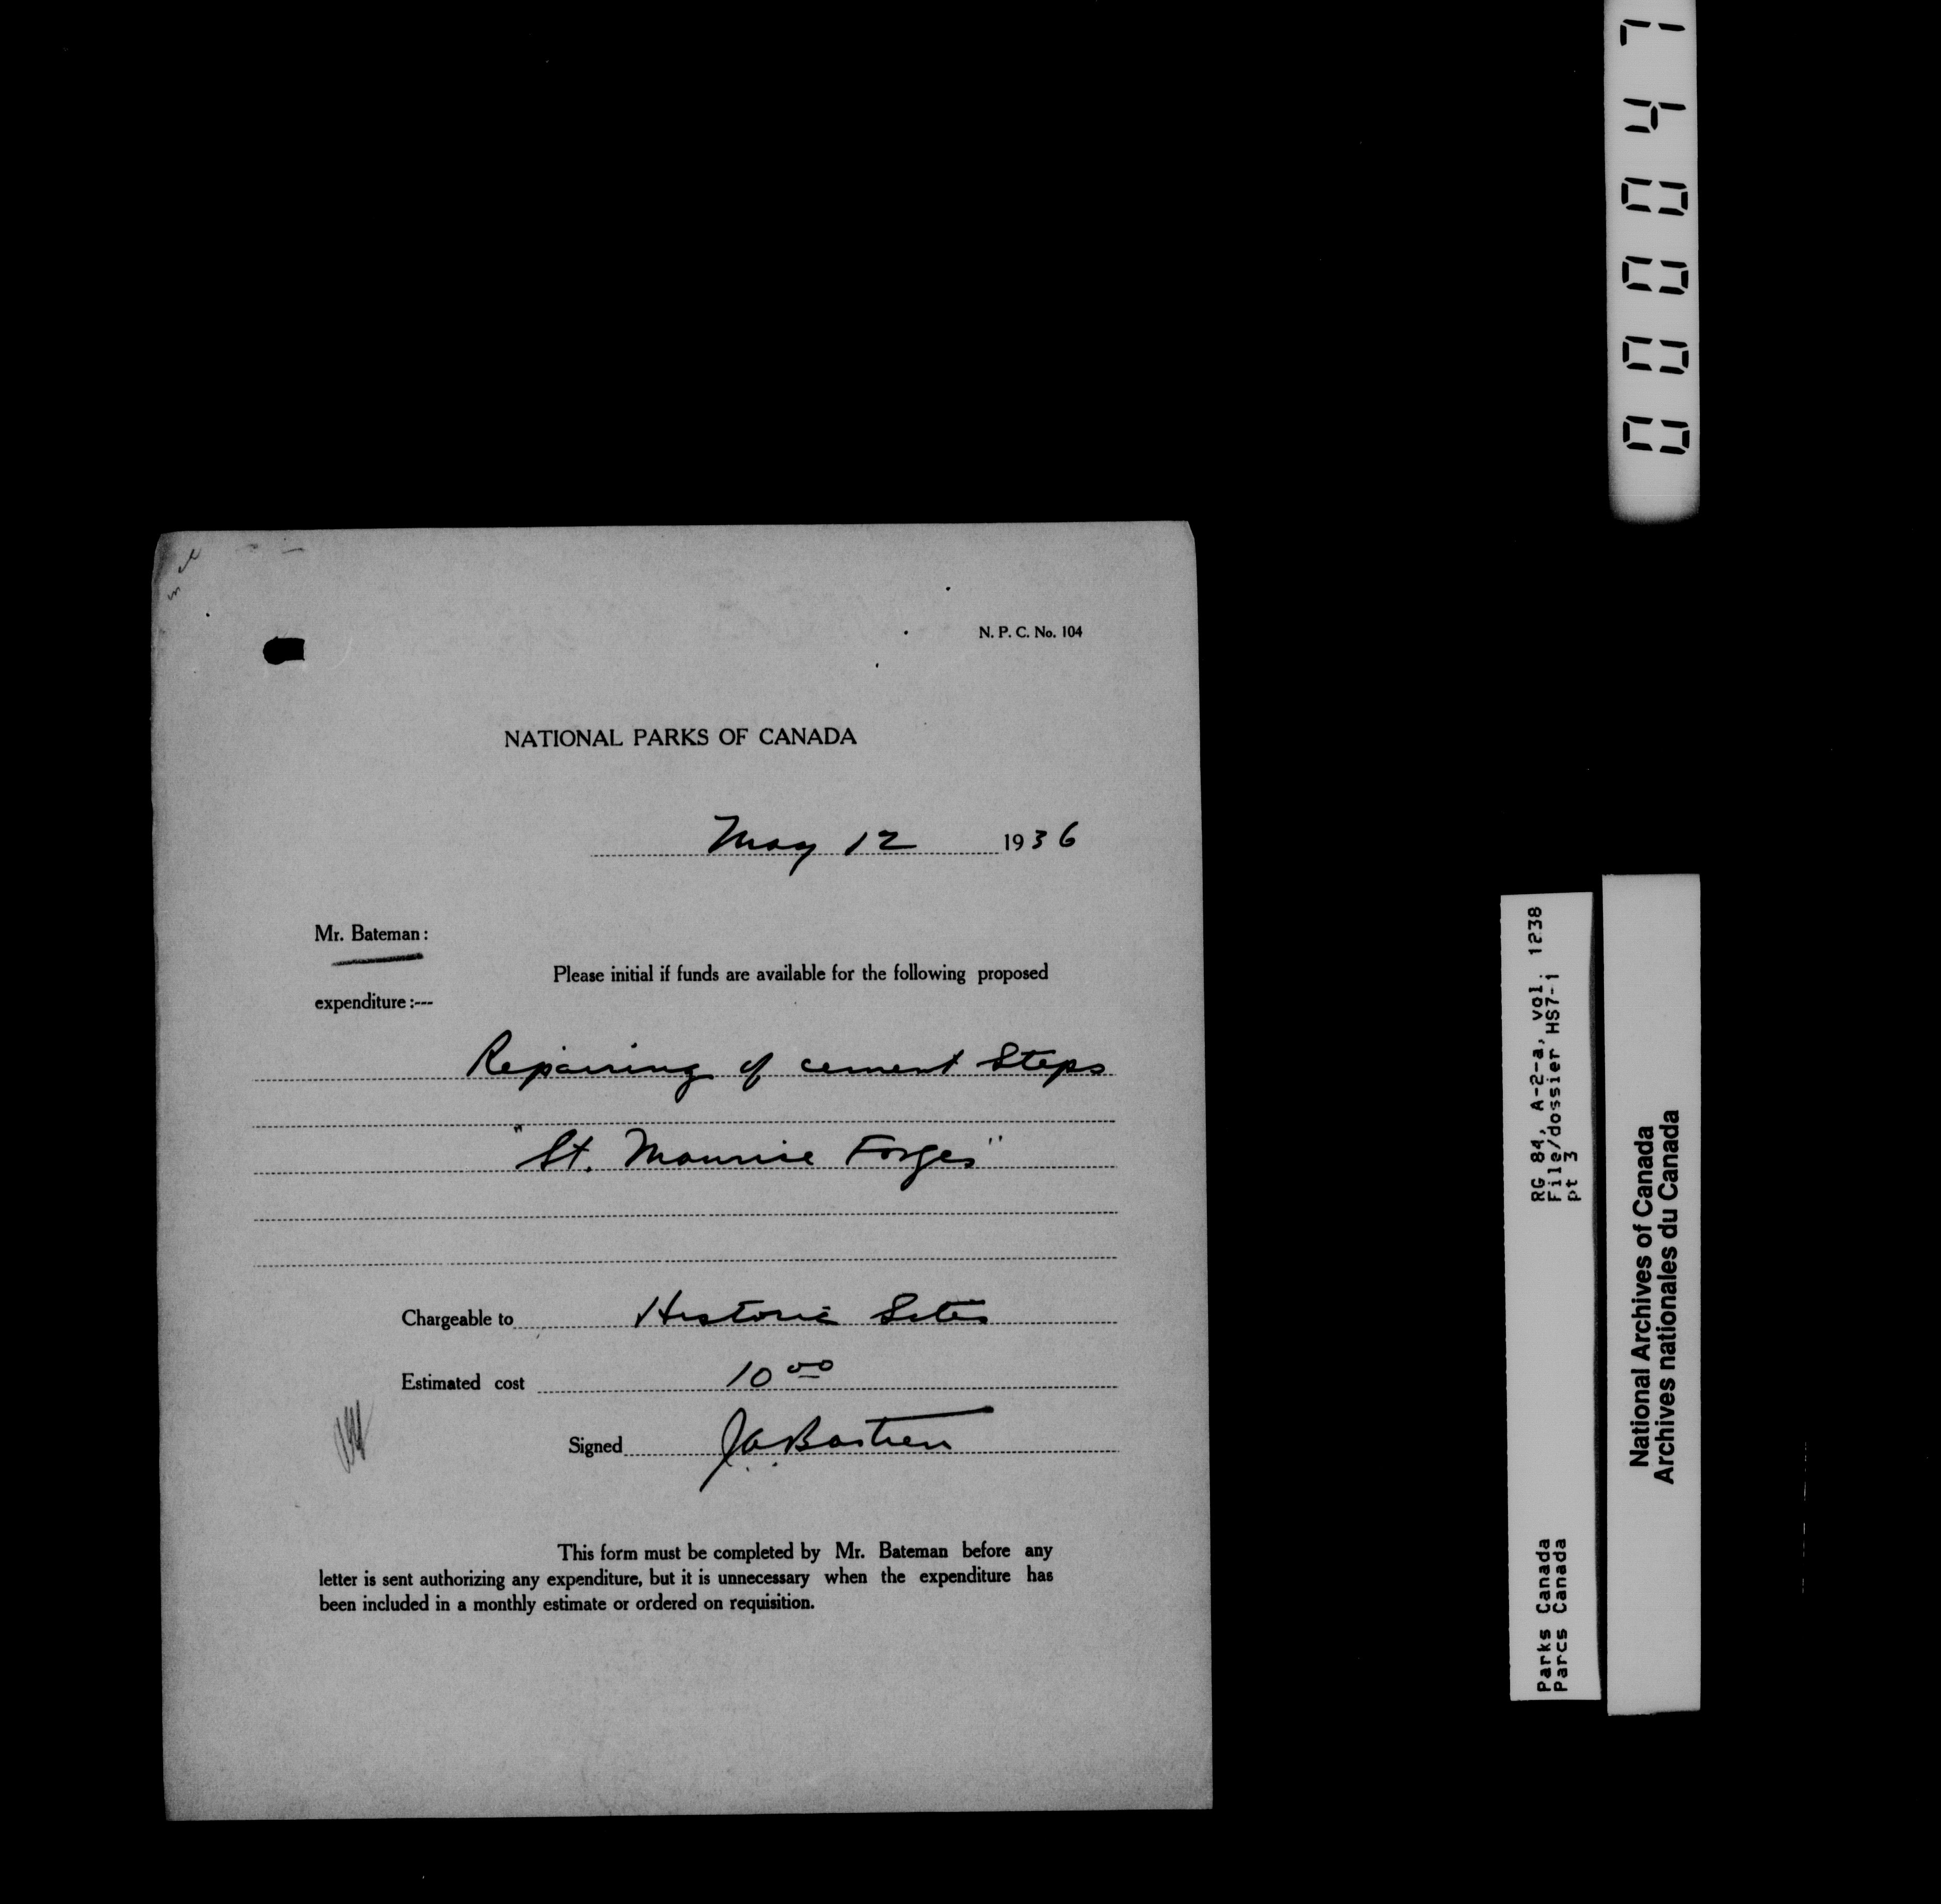 N. P. C. No. 104
NATIONAL PARKS OF CANADA
May 12 1936
Mr. Bateman:
Please initial if funds are available for the following proposed
expenditure:---
Repairing of cement Steps
"St. Maurice Forges"
Chargeable to Historic Sites
Estimated cost 10 00
Signed J.A. Bastien
This form must be completed by Mr. Bateman before any
letter is sent authorizing any expenditure, but it is unnecessary when the expenditure has
been included in a monthly estimate or ordered on requisition.
Parks Canada RG 84, A-2-a, vol. 1238
Parcs Canada File/dossier HS7-1
pt 3
National Archives of Canada
Archives nationales du Canada